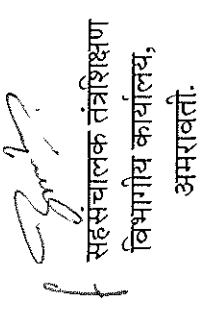 सहसंचालक तंत्रशिक्षण
विभागीय कार्यालय,
अमरावती.